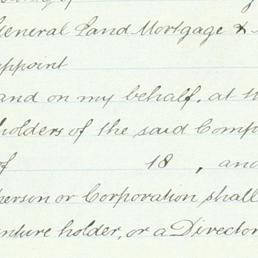 General Land Mortgage &
appoint
and on my behalf, at th
holders of the said Comp
of 18 , and
person or Corporation shall
enture holder, or a Director